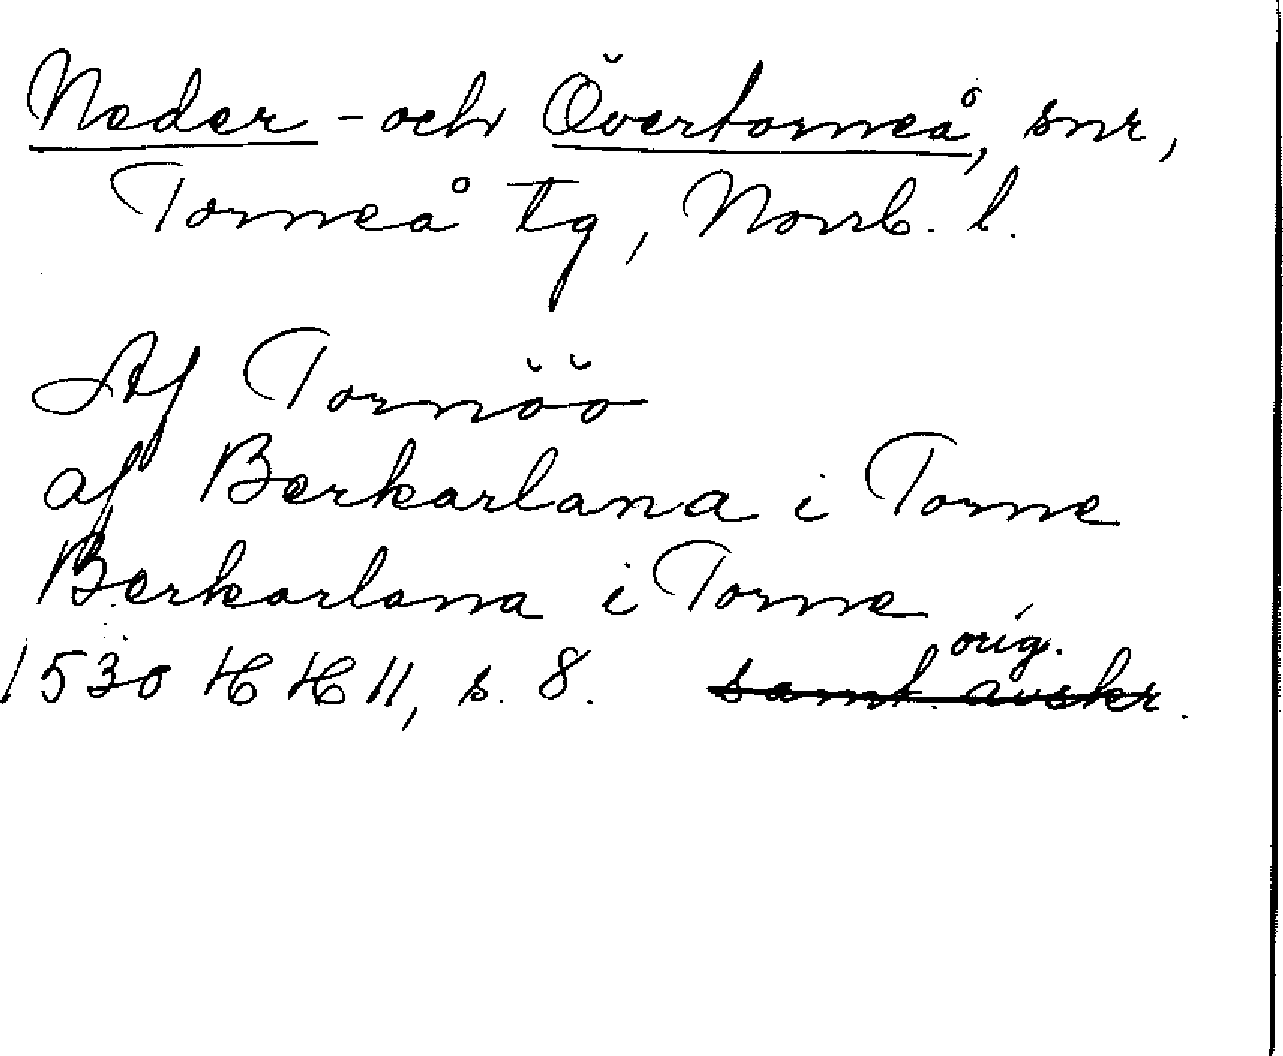 Neder- och Övertorneå, snr,
Torneå tg, Norrb. l.
Af Tornöö
af Berkarlana i Torne
Berkarlana i Torne
orig.
1530 HH 11, s. 8. samt. avskr.